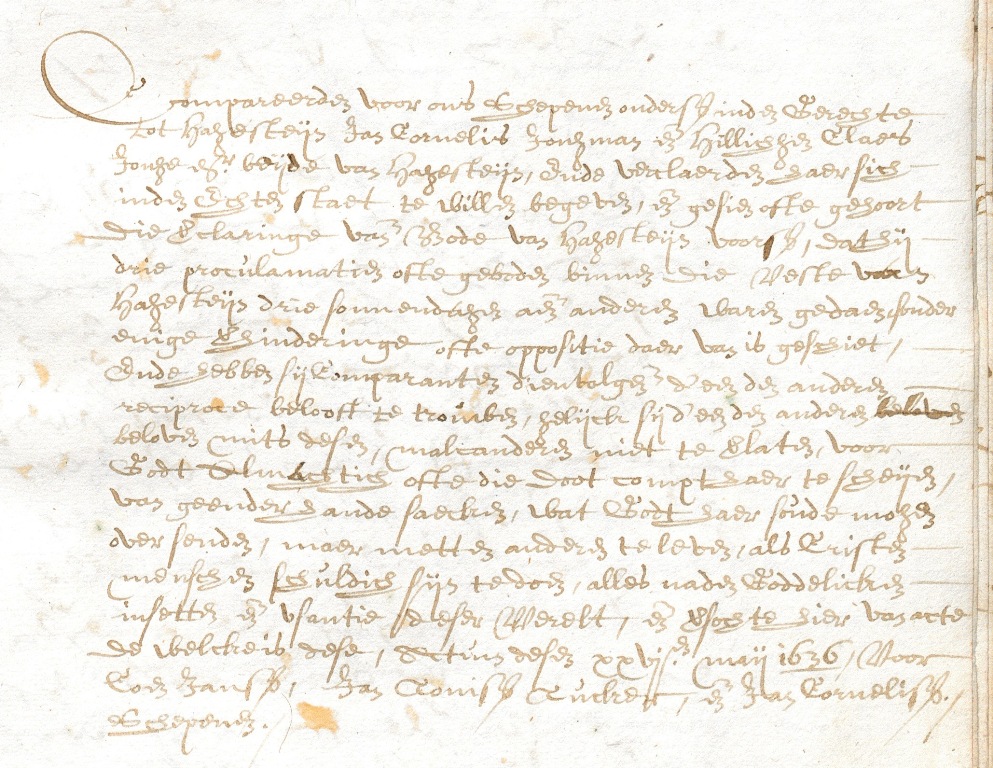 Compareerden voor ons Schepenen ondersz inden Gerechte
tot Hazesteijn Jan Cornelis Jonghman en Hillichgen Claes
Jonge dr. beijde van Hazesteijn, Ende verclaerden haer sich
inden Echten staet te willen begeven, en gesien ofte gehoort
die Verclaringe van Bode van Hazesteijn voorsz, dat hij
drie proculamatien ofte geboden binnen die Veste van
Hazesteijn drie sonnendagen aen anderen waren gedaen, sonder
enige Verhinderinge ofte oppositie daer van is geschiet,
Ende hebben sij Comparanten dienvolgen d'een den anderen
reciproce belooft te trouwen, gelijck sij d'een den anderen beloven
beloven mits desen, malcanderen niet te Verlaten, voor
Godt Almachtich ofte die doot compt haer te scheijen,
van geenderhande saecken, wat Godt haer soude mogen
oversenden, maer metten anderen te leven, als Cristen
menschen schuldich sijn te doen, alles naden Goddelicken
insetten en usantie deser Werelt, en Versochte hier van acte
de welcke is dese, Actum desen xxvijen maij 1636, Voor
Coen Jansz, Jan Tonisz, en Jan Cornelisz.,
Schepenen.